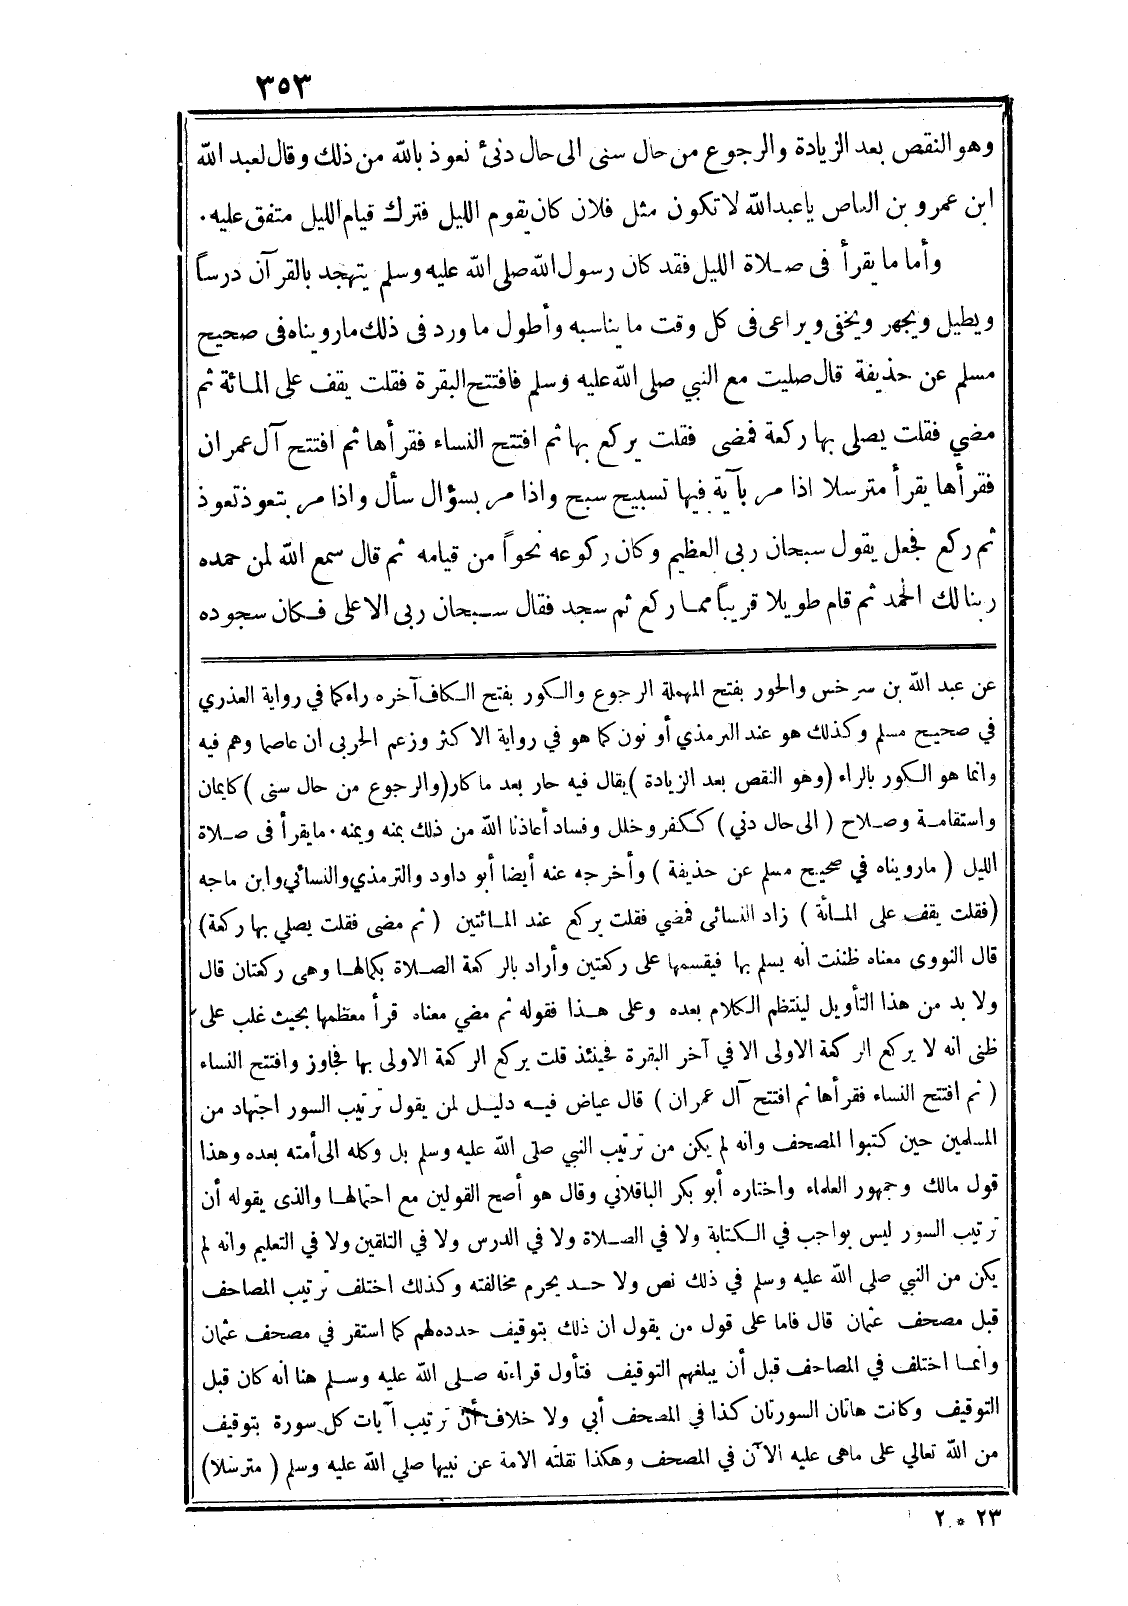 ٣٥٣
وهو النقص بعد الزيادة والرجوع من حال سنى الى حال دنئ نعوذ بالله من ذلك وقال لعبد الله
ابن عمرو بن العاص ياعبدالله لا تكون مثل فلان كان يقوم الليل فترك قيام الليل متفق عليه ٠
وأما ما يقرأ فى صلاة الليل فقد كان رسول الله صلى الله عليه وسلم يتهجد بالقرآن درساً
ويطيل ويجهر ويخفى ويراعى فى كل وقت ما يناسبه وأطول ما ورد فى ذلك مارويناه فى صحيح
مسلم عن حذيفة قال صليت مع النبي صلى الله عليه وسلم فافتتح البقرة فقلت يقف على المائة ثم
مضي فقلت يصلى بها ركعة فمضى فقلت يركع بها ثم افتتح النساء فقرأها ثم افتتح آل عمران
فقرأها يقرأ مترسلا اذا مر بآية فيها تسبيح سبح واذا مر بسؤال سأل واذا مر بتعوذ تعوذ
ثم ركع فجعل يقول سبحان ربى العظيم وكان ركوعه نحواً من قيامه ثم قال سمع الله لمن حمده
ربنا لك الحمد ثم قام طويلا قريباً مما ركع ثم سجد فقال سبحان ربى الاعلى فكان سجوده
عن عبد الله بن سرخس والحور بفتح المهملة الرجوع والكور بفتح الكاف آخره راء كما في رواية العذري
في صحيح مسلم وكذلك هو عند الترمذي أو نون كما هو في رواية الاكثر وزعم الحربى ان عاصما وهم فيه
وانما هو الكور بالراء (وهو النقص بعد الزيادة) يقال فيه حار بعد ما كار (والرجوع من حال سنى) كايمان
واستقامة وصلاح (الى حال دني) ككفر وخلل وفساد أعاذنا الله من ذلك بمنه ويمنه ٠ مايقرأ فى صلاة
الليل (مارويناه في صحيح مسلم عن حذيفة) وأخرجه عنه أيضا أبو داود والترمذي والنسائي وابن ماجه
(فقلت يقف على المائة) زاد النسائى فمضي فقلت يركع عند المائتين (ثم مضى فقلت يصلي بها ركعة)
قال النووى معناه ظننت أنه يسلم بها فيقسمها على ركعتين وأراد بالركعة الصلاة بكمالها وهى ركعتان قال
ولا بد من هذا التأويل لينتظم الكلام بعده وعلى هذا فقوله ثم مضي معناه قرأ معظمها بحيث غلب على
ظنى انه لا يركع الركعة الاولى الا في آخر البقرة فحينئذ قلت يركع الركعة الاولى بها فجاوز وافتتح النساء
(ثم افتتح النساء فقرأها ثم افتتح آل عمران) قال عياض فيه دليل لمن يقول ترتيب السور اجتهاد من
المسلمين حين كتبوا المصحف وانه لم يكن من ترتيب النبي صلى الله عليه وسلم بل وكله الى أمته بعده وهذا
قول مالك وجمهور العلماء واختاره أبو بكر الباقلاني وقال هو أصح القولين مع احتمالها والذى يقوله أن
ترتيب السور ليس بواجب في الكتابة ولا في الصلاة ولا في الدرس ولا في التلقين ولا في التعليم وانه لم
يكن من النبي صلى الله عليه وسلم في ذلك نص ولا حد يحرم مخالفته وكذلك اختلف ترتيب المصاحف
قبل مصحف عثمان قال فاما على قول من يقول ان ذلك بتوقيف حدده لهم كما استقر في مصحف عثمان
وانما اختلف في المصاحف قبل أن يبلغهم التوقيف فتأول قراءته صلى الله عليه وسلم هنا انه كان قبل
التوقيف وكانت هاتان السورتان كذا في المصحف أبي ولا خلاف أن ترتيب آيات كل سورة بتوقيف
من الله تعالي على ماهى عليه الآن في المصحف وهكذا نقلته الامة عن نبيها صلي الله عليه وسلم (مترسلا)
٢٣ * ٢